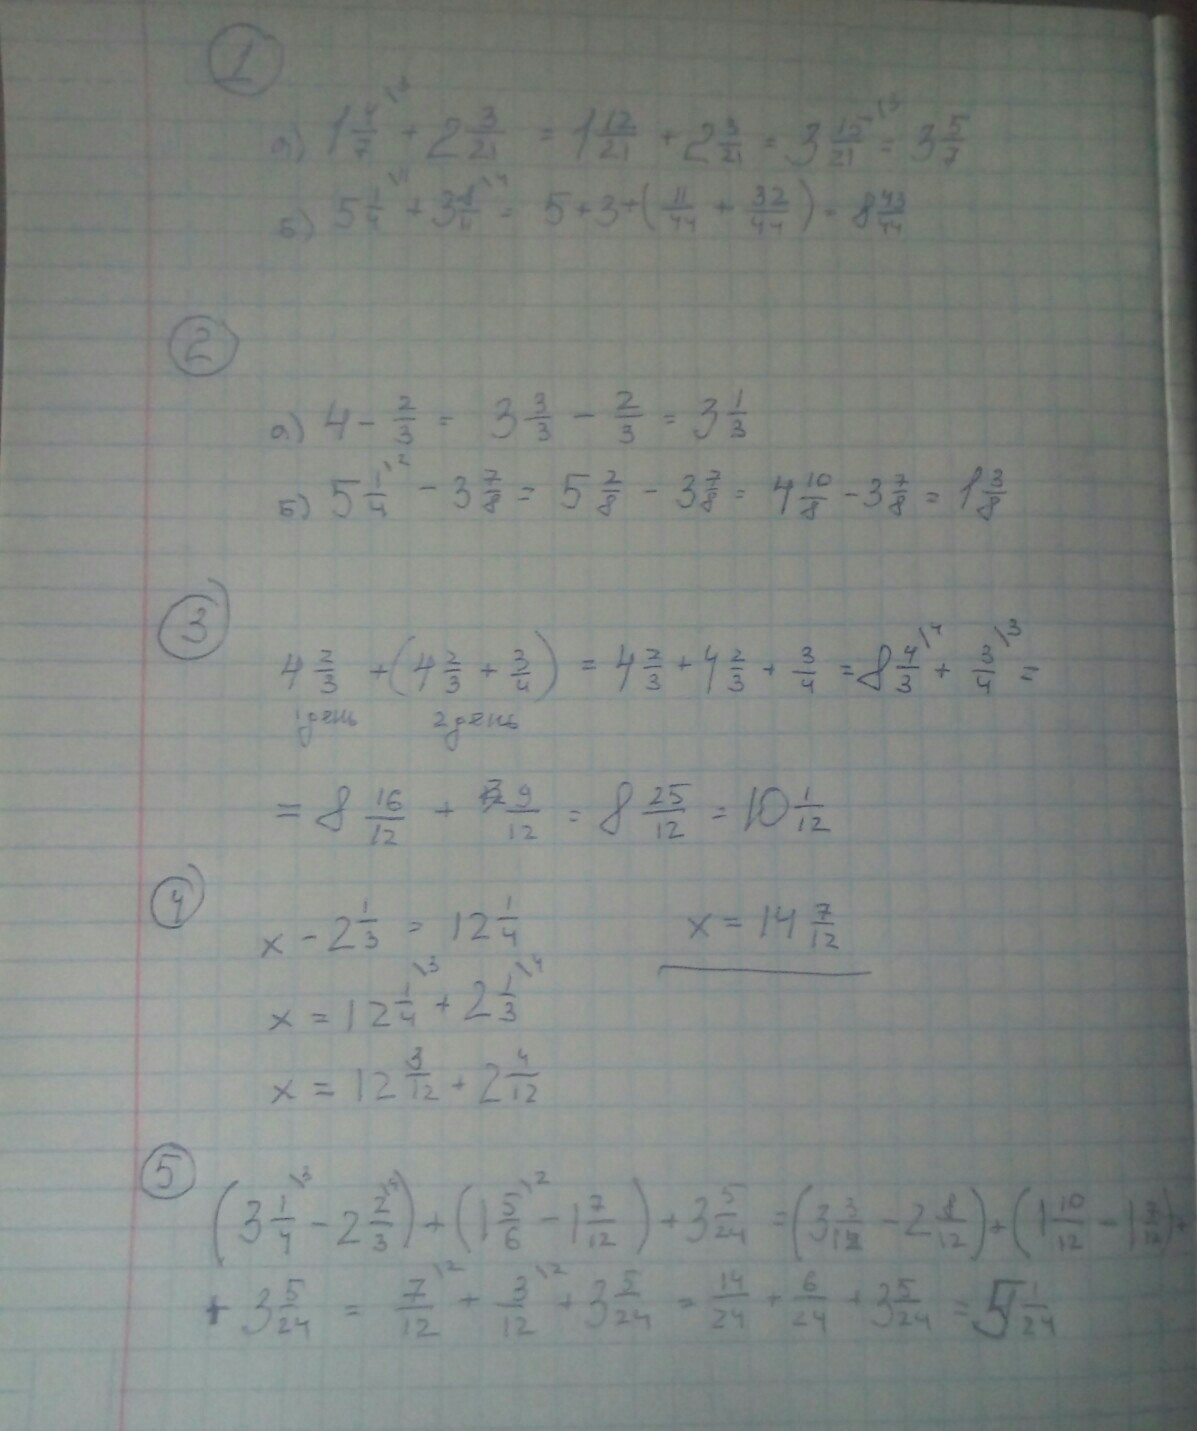 1
а) 1 4/7 \3 + 2 3/21 = 1 12/21 + 2 3/21 = 3 15/21 \3 = 3 5/7
б) 5 1/4 \11 + 3 8/11 \4 = 5 + 3 + (11/44 + 32/44) = 8 43/44
2
а) 4 - 2/3 = 3 3/3 - 2/3 = 3 1/3
б) 5 1/4 \2 - 3 7/8 = 5 2/8 - 3 7/8 = 4 10/8 - 3 7/8 = 1 3/8
3
4 2/3 + (4 2/3 + 3/4) = 4 2/3 + 4 2/3 + 3/4 = 8 4/3 \4 + 3/4 \3 =
1 день 2 день
= 8 16/12 + 9/12 = 8 25/12 = 10 1/12
4
x - 2 1/3 = 12 1/4 x = 14 7/12
x = 12 1/4 \3 + 2 1/3 \4
x = 12 3/12 + 2 4/12
5
(3 1/4 \3 - 2 2/3) + (1 5/6 \2 - 1 7/12) + 3 5/24 = (3 3/12 - 2 8/12) + (1 10/12 - 1 7/12) +
+ 3 5/24 = 7/12 \2 + 3/12 \2 + 3 5/24 = 14/24 + 6/24 + 3 5/24 = 5 1/24